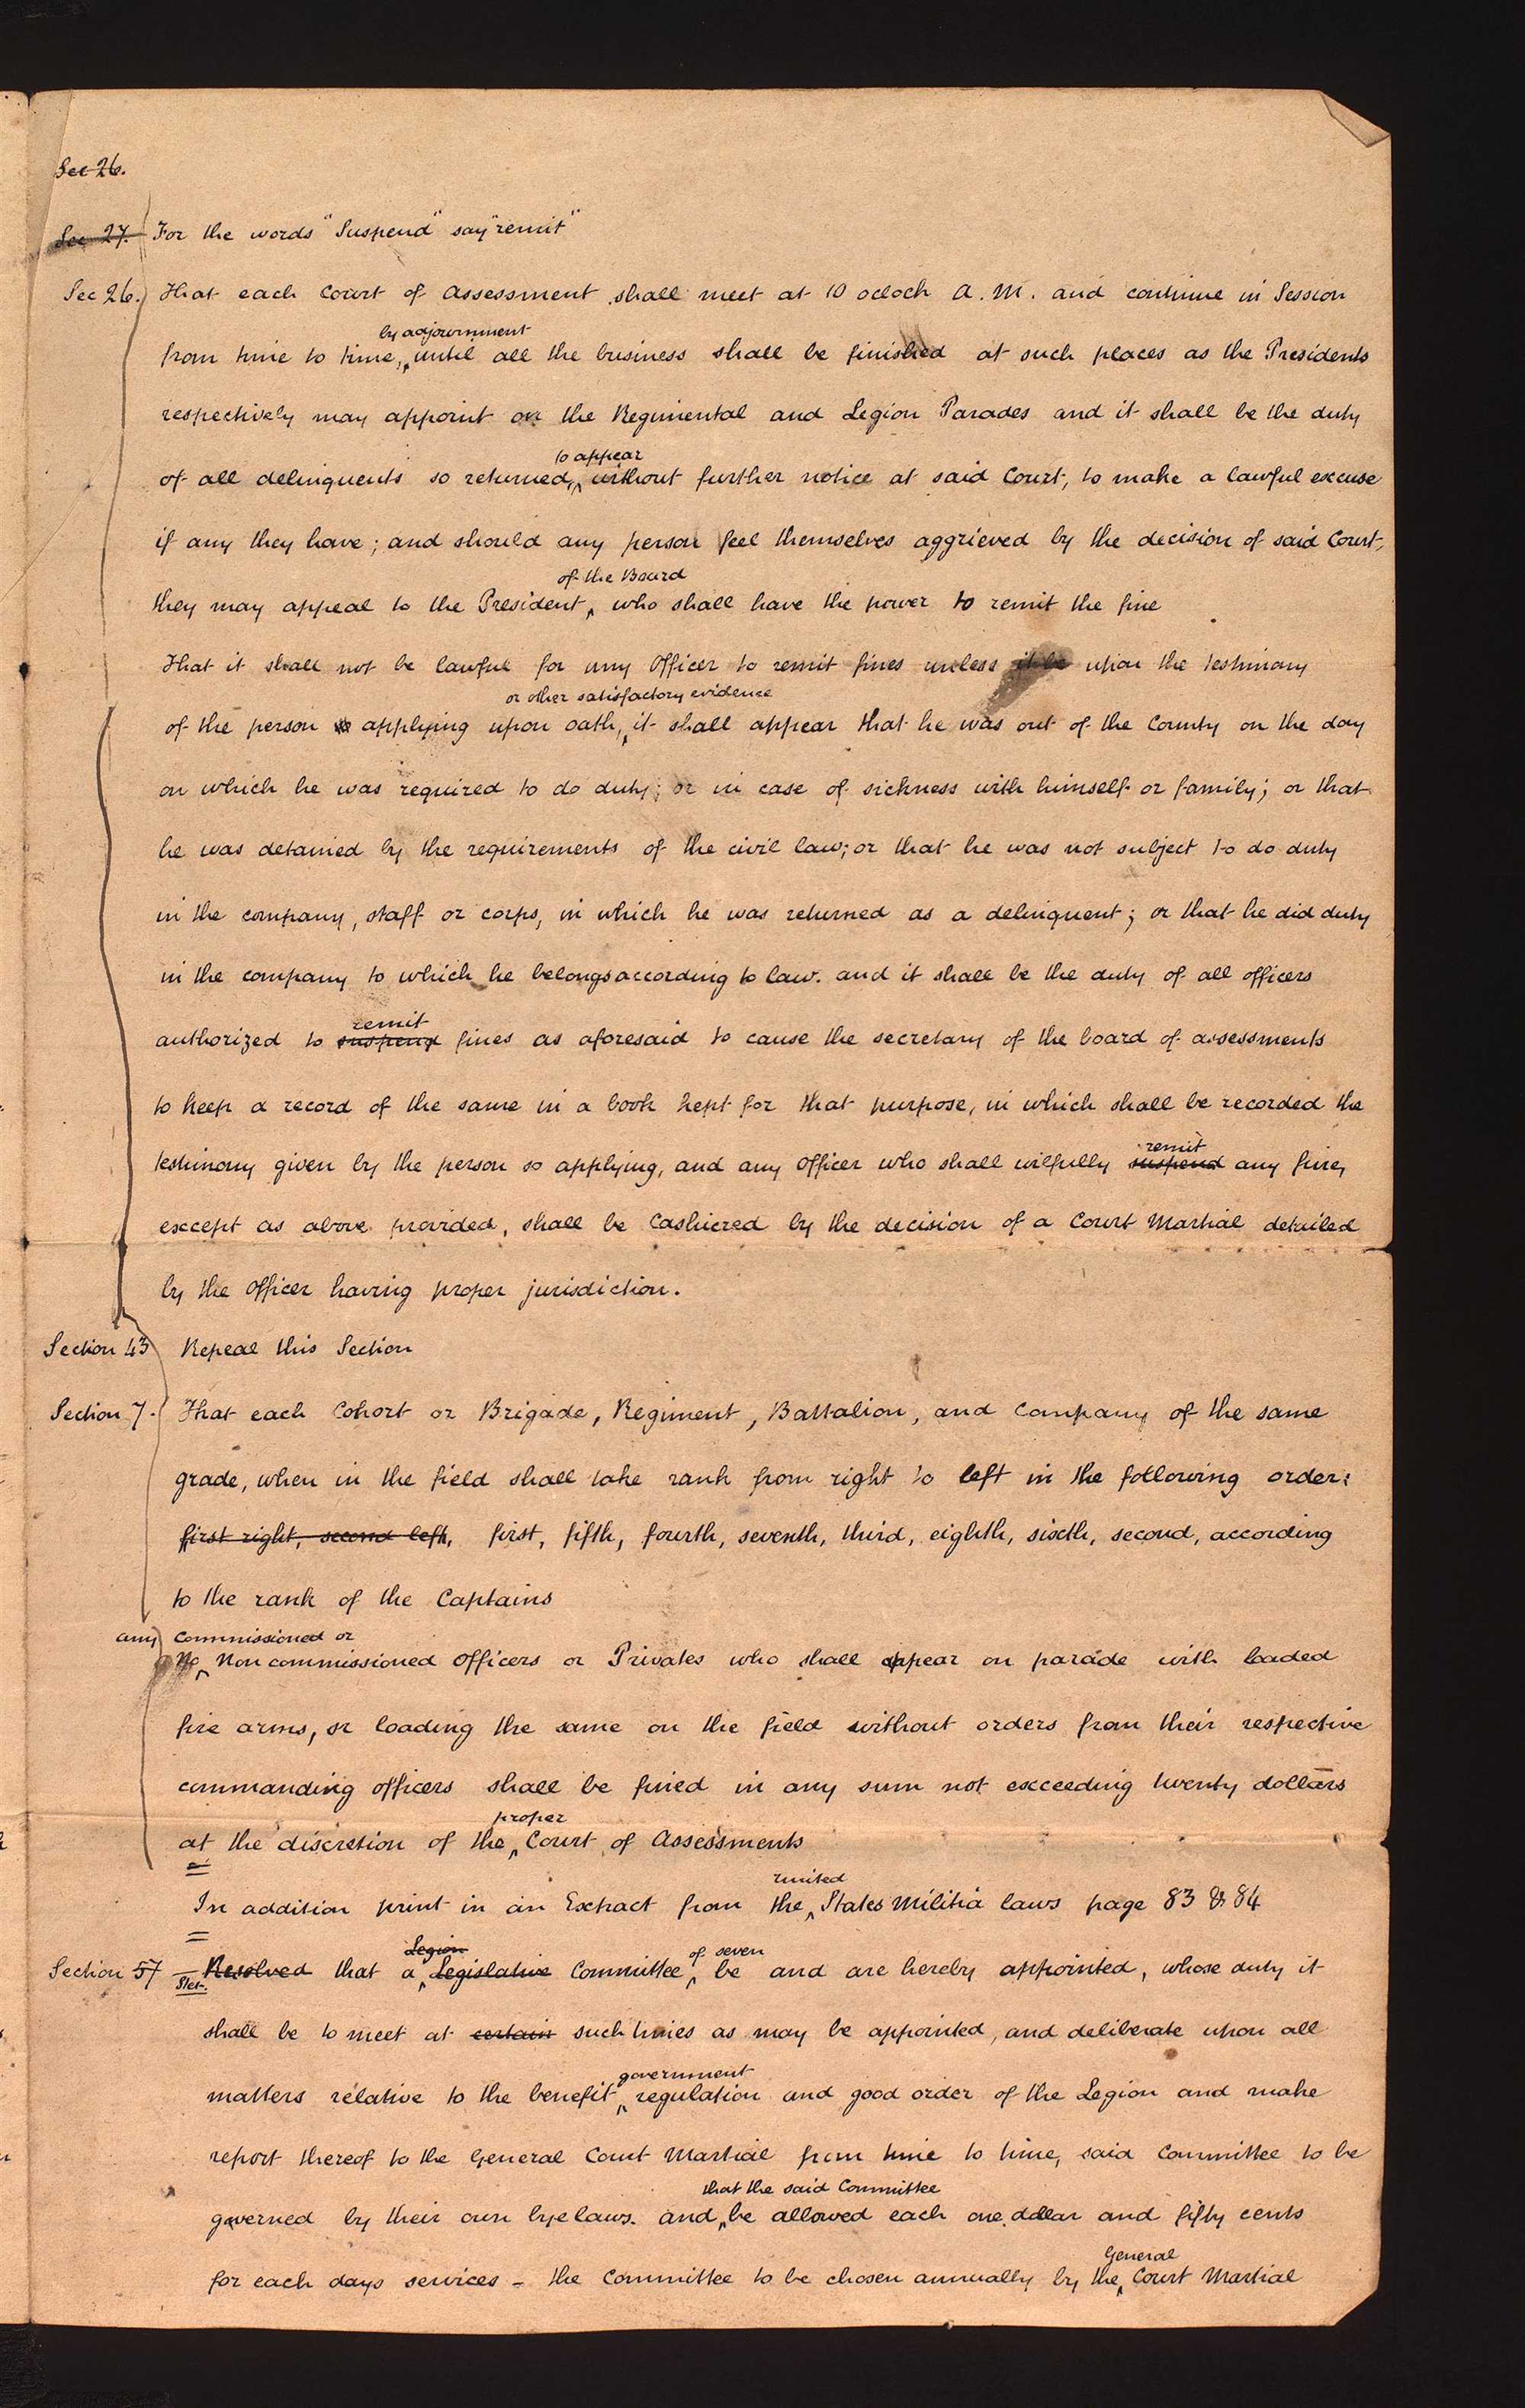 Sec 26.
Sec 27. For the words "Suspend" say "remit"
Sec 26. That each Court of Assessment shall meet at 10 ocloch A. M. and continue in Session
by adjournment
from time to time, until all the business shall be finished at such places as the Presidents
respectively may appoint on the Regimental and Legion Parades and it shall be the duty
to appear
of all delinquents so returned, without further notice at said Court, to make a lawful excuse
if any they have; and should any person feel themselves aggrieved by the decision of said Court,
of the Board
they may appeal to the President, who shall have the power to remit the fine
That it shall not be lawful for any Officer to remit fines unless it be upon the testimony
or other satisfactory evidence
of the person applying upon oath, it shall appear that he was out of the County on the day
on which he was required to do duty; or in case of sickness with himself or family; or that
he was detained by the requirements of the civil law; or that he was not subject to do duty
in the company, staff or corps, in which he was returned as a delinquent; or that he did duty
in the company to which he belongs according to law. and it shall be the duty of all officers
remit
authorized to suspend fines as aforesaid to cause the secretary of the board of assessments
to keep a record of the same in a book kept for that purpose, in which shall be recorded the
remit
testimony given by the person so applying, and any Officer who shall wilfully suspend any fine,
except as above provided, shall be Cashiered by the decision of a Court Martial detailed
by the Officer having proper jurisdiction.
Section 43 Repeal this Section
Section 7. That each Cohort or Brigade, Regiment, Battalion, and Company of the same
grade, when in the field shall take rank from right to left in the following order:
first right, second left, first, fifth, fourth, seventh, third, eighth, sixth, second, according
to the rank of the Captains
any Commissioned or
No Non commissioned Officers or Privates who shall appear on parade with loaded
fire arms, or loading the same on the field without orders from their respective
commanding officers shall be fined in any sum not exceeding twenty dollars
proper
at the discretion of the Court of Assessments
united
In addition print in an Extract from the States Militia laws page 83 & 84
Legion of seven
Section 57 Resolved that a Legislative Committee be and are hereby appointed, whose duty it
shall be to meet at certain such times as may be appointed, and deliberate upon all
government
matters relative to the benefit, regulation and good order of the Legion and make
report thereof to the General Court Martial from time to time, said Committee to be
that the said Committee
governed by their own bye laws. and be allowed each one dollar and fifty cents
General
for each days services - the Committee to be chosen annually by the Court Martial